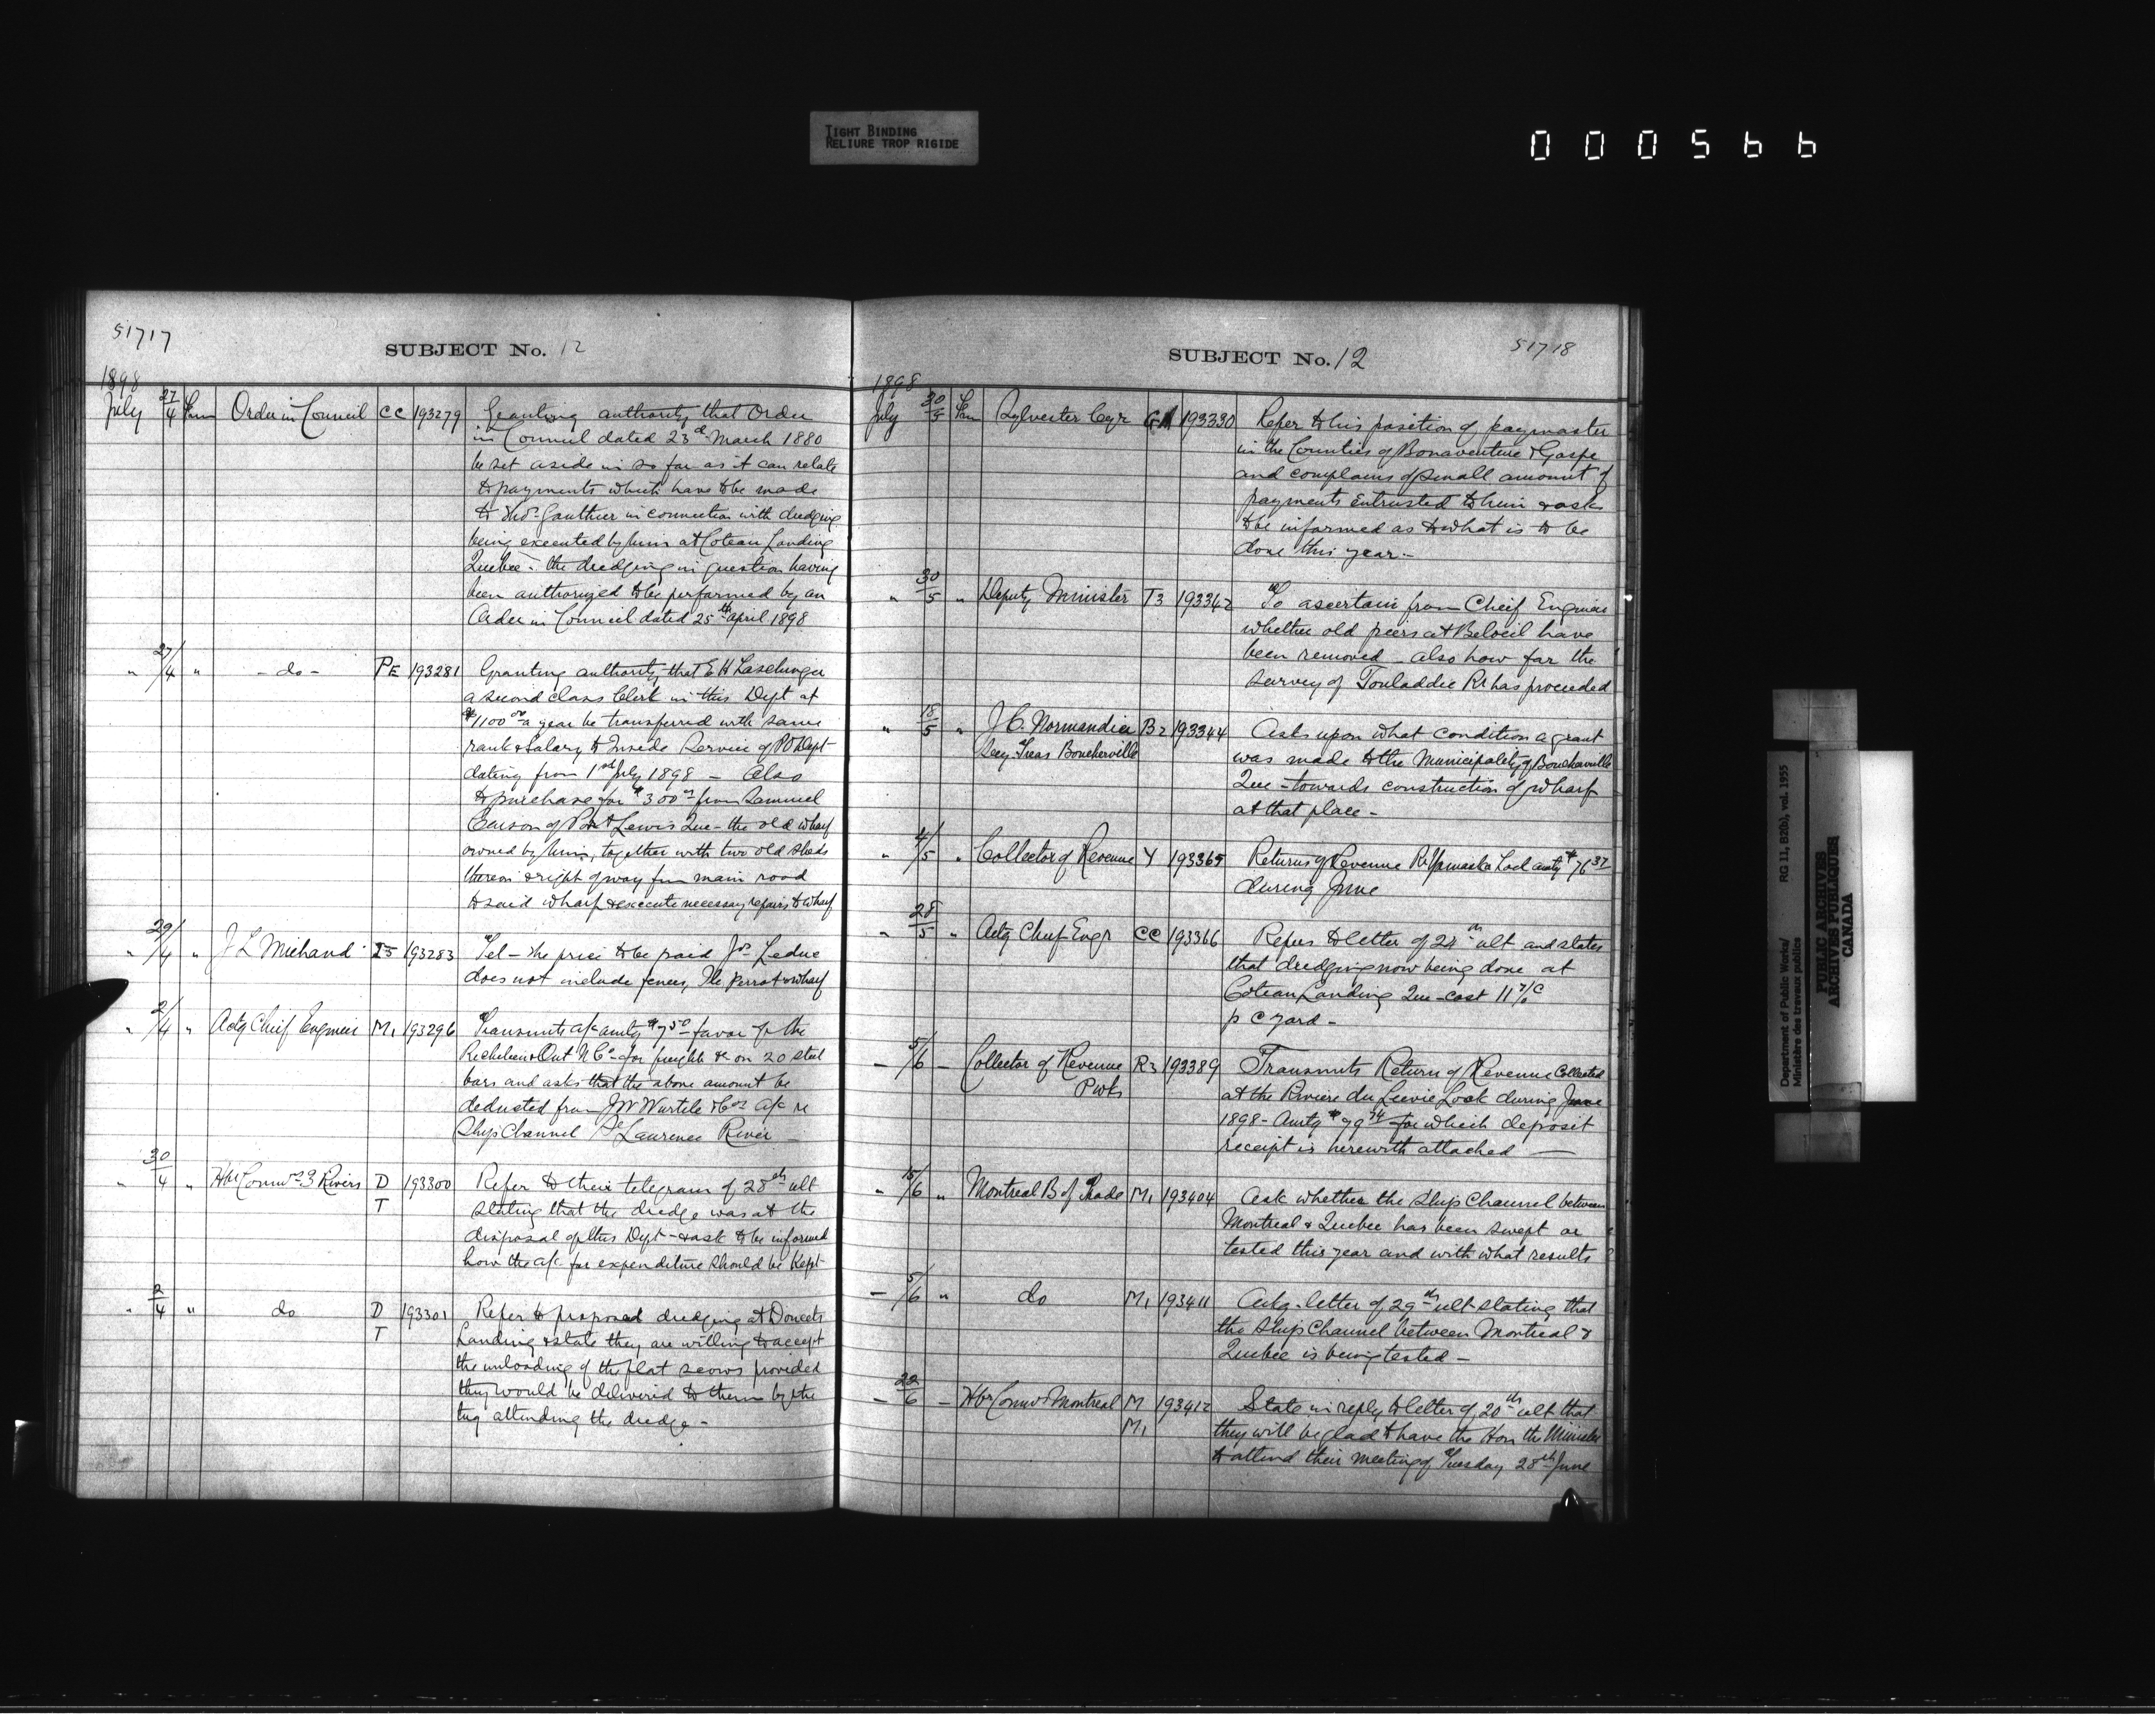 TIGHT BINDING
RELIURE TROP RIGIDE
000566
51717
SUBJECT No. 12
1898
July 27/4 Order in Council CC 193279 Granting authority that Order
in Council dated 23d March 1880
be set aside in so far as it can relate
to payments which have to be made
to Thos. Gauthier in connection with dredging
being executed by him at Coteau Landing
Quebec - the dredging in question having
been authorized to be performed by an
Order in Council dated 25th April 1898
" 27/4 " - do - PE 193281 Granting authority that E H
a second class Clerk in this Dept at
$1100 00 a year be transferred with same
rank & salary to Inside Service of PO Dept
dating from 1st July 1898 - Also
to purchase for $300 00 from Samuel
of Point Lewis Que - the old wharf
owned by him, together with two old sheds
thereon & right of way from main road
to said wharf & execute necessary repairs to wharf
" 29/4 " J L Michaud I5 193283 Tel - The price to be paid Jos Leduc
does not include fences, Ile Perrot wharf
" 2/4 " Actg Chief Engineer M1 193296 Transmits a/c amtg $7 50 favor of the
Richelieu & Ont N Co - for freight &c on 20 steel
bars and asks that the above amount be
deducted from J W Wurtele & Cos a/c re
Ship Channel St Laurence River
" 30/4 " Hbr Commrs 3 Rivers D T 193300 Refer to their telegram of 28th ult
stating that the dredge was at the
disposal of this Dept - & ask to be informed
how the a/c for expenditure should be kept
" 2/4 " do D T 193301 Refer to proposed dredging at Doucets
Landing & state they are willing to accept
the unloading of the flat scows provided
they would be delivered to them by the
tug attending the dredge -
51718
SUBJECT No. 12
1898
July 30/5 Sylvester Cyr GA 193330 Refer to his position of paymaster
in the Counties of Bonaventure & Gaspe
and complains of small amount of
payments entrusted to him & asks
to be informed as to what is to be
done this year -
" 30/5 " Deputy Minister T3 193342 To ascertain from Cheif Engineer
whether old piers at Beloeil have
been removed - also how far the
survey of Touladdie Rr has proceeded
" 18/5 " J C. Normandin B2 193344 Asks upon what condition a grant
Secy. Treas Boucherville was made to the Municipality of Boucherville
Que - towards construction of wharf
at that place -
" 4/5 " Collector of Revenue Y 193365 Returns of Revenue Rr Yamaska Lock amtg $76 37
during June
" 28/5 " Actg Chief Engr CC 193366 Refers to letter of 27th ult and states
that dredging now being done at
Coteau Landing Que - cost 11
p c yard -
- 5/6 - Collector of Revenue R3 193389 Transmits Return of Revenue Collected
Pwks at the Riviere du Lievre Lock during June
1898 - Amtg $79 74 for which deposit
receipt is herewith attached -
" 15/6 " Montreal B of Trade M1 193404 Ask whether the Ship Channel between
Montreal & Quebec has been swept or
tested this year and with what results
- 5/6 " do M1 193411 Ackg. letter of 29th ult stating that
the Ship Channel between Montreal &
Quebec is being tested -
- 22/6 - Hbr Commrs Montreal M M1 193412 State in reply to letter of 20th ult that
they will be glad to have the Hon the Minister
to attend their meeting of Tuesday 28th June
Department of Public Works/
Ministère des travaux publics
RG 11, B2(b), vol. 1955
PUBLIC ARCHIVES
ARCHIVES PUBLIQUES
CANADA